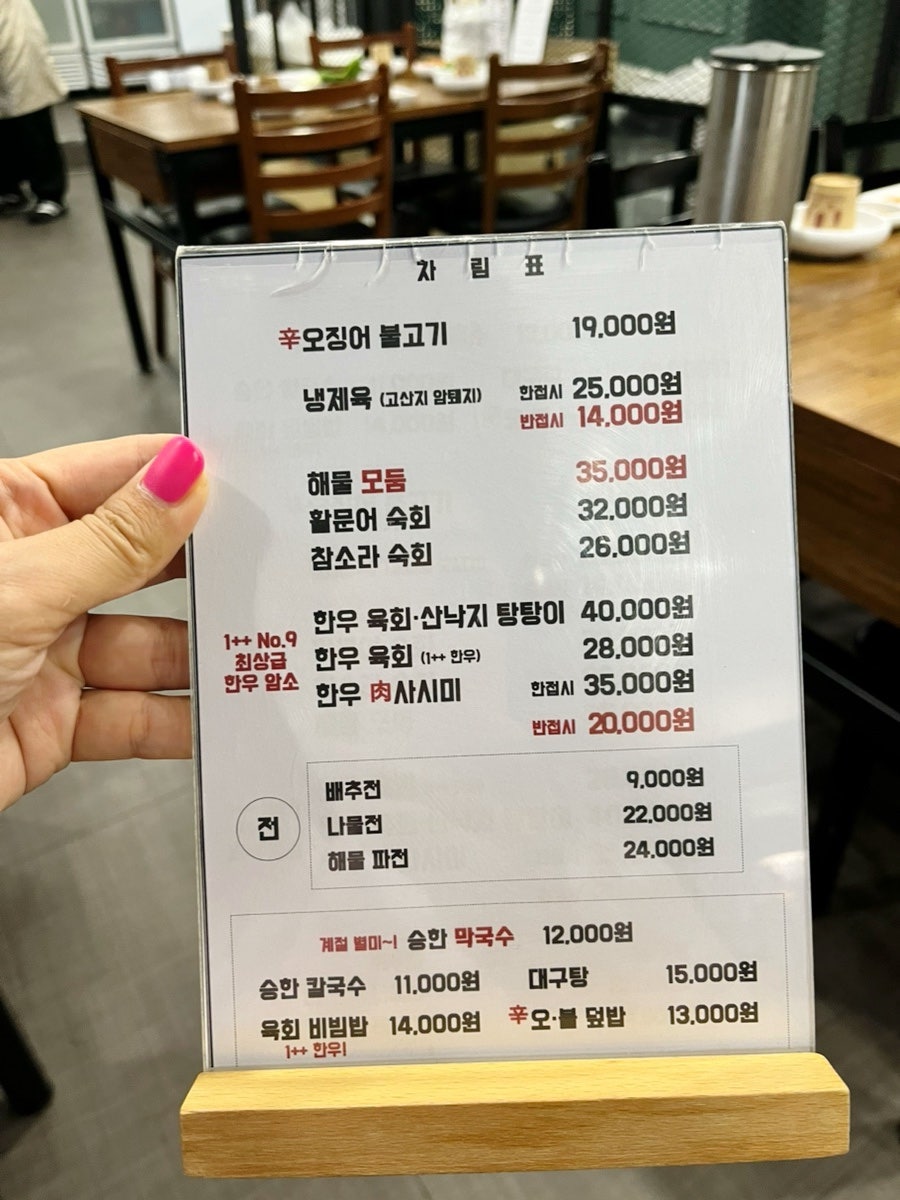 차 림 표
辛오징어 불고기 19,000원
냉제육 (고산지 암퇘지) 한접시 25,000원
반접시 14,000원
해물 모둠 35,000원
활문어 숙회 32,000원
참소라 숙회 26,000원
한우 육회·산낙지 탕탕이 40,000원
1++ No.9
최상급
한우 암소
한우 육회 (1++ 한우) 28,000원
한우 肉사시미 한접시 35,000원
반접시 20,000원
전
배추전 9,000원
나물전 22,000원
해물 파전 24,000원
계절 별미~! 승한 막국수 12,000원
승한 칼국수 11,000원 대구탕 15,000원
육회 비빔밥 14,000원 辛오·불 덮밥 13,000원
1++ 한우!